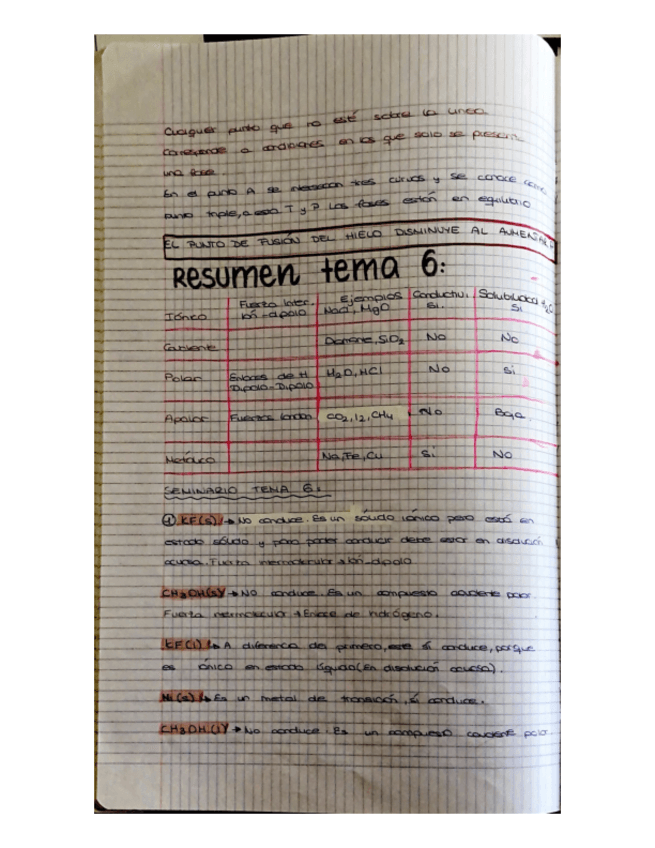 Cualquier punto que no esté sobre la línea
corresponde a condiciones en las que solo se presenta
una fase.
En el punto A se intersecan tres curvas y se conoce como
punto triple, a esa T y P las fases están en equilibrio
EL PUNTO DE FUSIÓN DEL HIELO DISMINUYE AL AUMENTAR P
Resumen tema 6:
Fuerza inter. Ejemplos Conductiv. Solubilidad H2O
Iónico Ión-dipolo NaCl, MgO Sí. Sí
Covalente Diamante, SiO2 No No
Polar Enlaces de H H2O, HCl No Sí
Dipolo-Dipolo
Apolar Fuerzas london CO2, I2, CH4 No Baja
Metálico Na, Fe, Cu Sí No
SEMINARIO TEMA 6:
① KF(s) → No conduce. Es un sólido iónico pero está en
estado sólido y para poder conducir debe estar en disolución
acuosa. Fuerza intermolecular → Ión-dipolo
CH3OH(s) → No conduce. Es un compuesto covalente polar.
Fuerza intermolecular → Enlace de hidrógeno.
KF(l) → A diferencia del primero, este sí conduce, porque
es iónico en estado líquido (En disolución acuosa).
Ni(s) → Es un metal de transición, sí conduce.
CH3OH(l) → No conduce. Es un compuesto covalente polar.